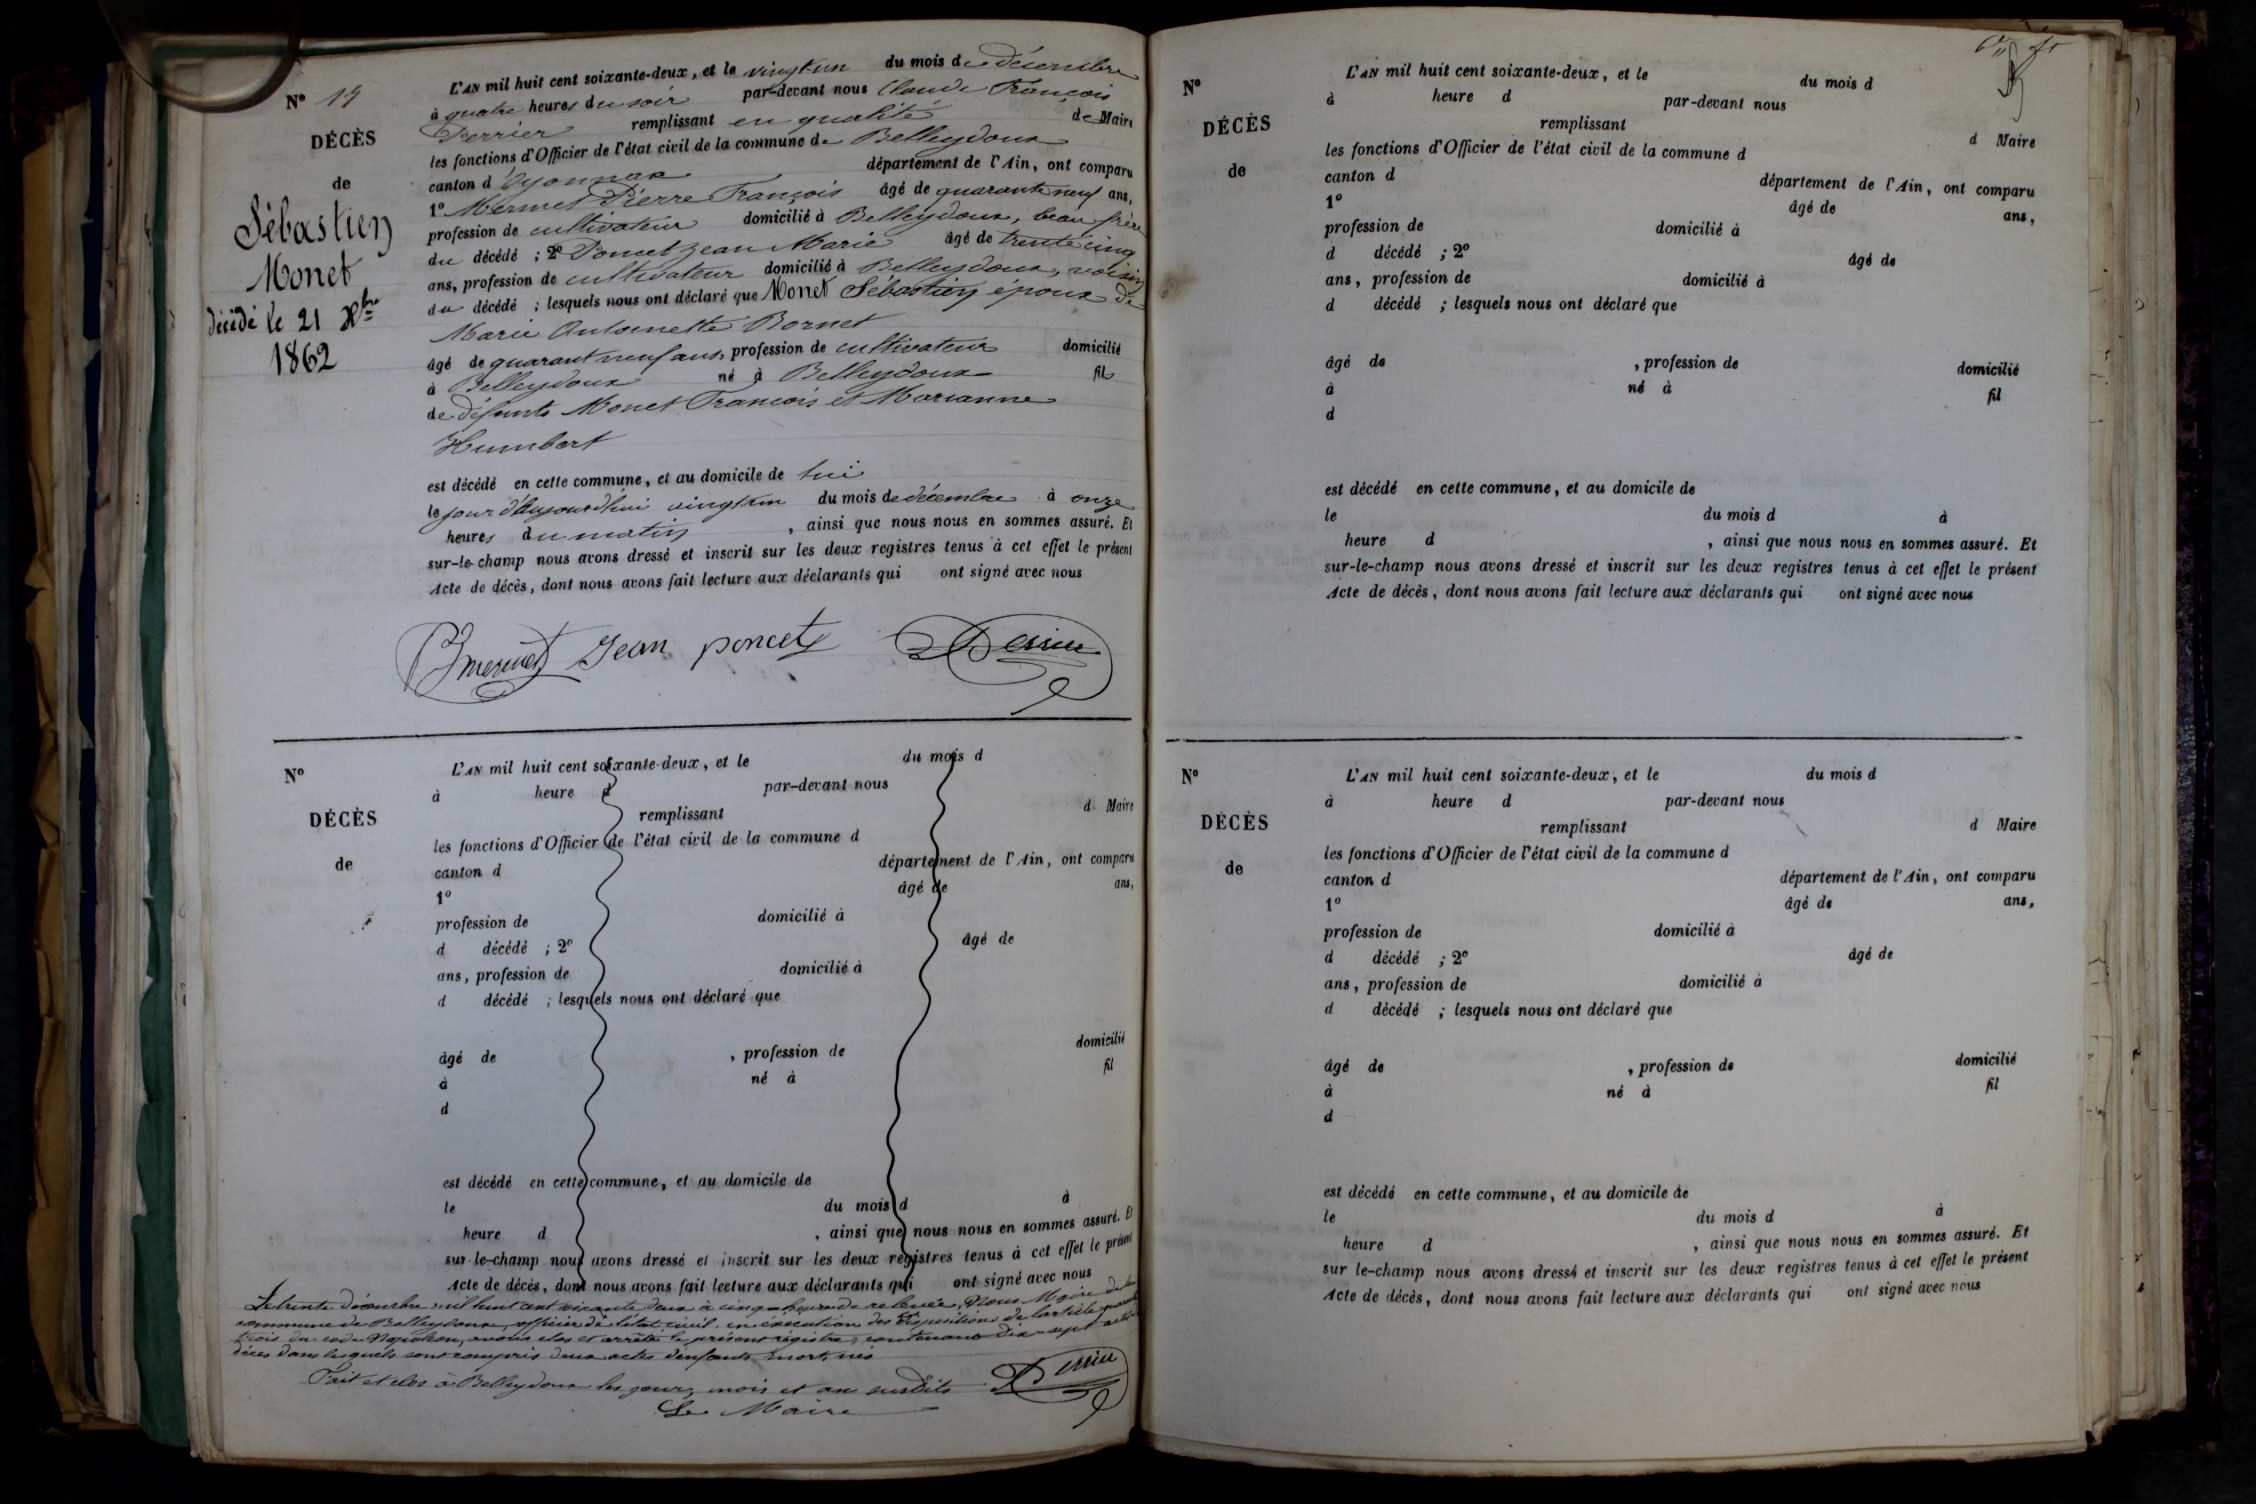 Nº 17
DÉCÈS
de
Sébastien
Monet
décédé le 21 Xbre
1862
L'AN mil huit cent soixante-deux, et le vingt un du mois de décembre
à quatre heures du soir par-devant nous Claude François
Perrier remplissant en qualité de Maire
les fonctions d'Officier de l'état civil de la commune de Belleydoux
canton d'Oyonnax département de l'Ain, ont comparu
1º Mermet Pierre François âgé de quarante neuf ans,
profession de cultivateur domicilié à Belleydoux, beau frère
du décédé ; 2º Poncet Jean Marie âgé de trente cinq
ans, profession de cultivateur domicilié à Belleydoux, voisin
du décédé ; lesquels nous ont déclaré que Monet Sébastien époux de
Marie Antoinette Bornet
âgé de quarant neuf ans, profession de cultivateur domicilié
à Belleydoux né à Belleydoux fils
de défunts Monet François et Marianne
Humbert
est décédé en cette commune, et au domicile de lui
le jour d'Aujourd'hui vingt un du mois de décembre à onze
heures du matin, ainsi que nous nous en sommes assuré. Et
sur-le-champ nous avons dressé et inscrit sur les deux registres tenus à cet effet le présent
Acte de décès, dont nous avons fait lecture aux déclarants qui ont signé avec nous
mermet Jean poncet Perrier
Nº
DÉCÈS
de
L'AN mil huit cent soixante-deux, et le du mois d
à heure d par-devant nous
remplissant d Maire
les fonctions d'Officier de l'état civil de la commune d
canton d département de l'Ain, ont comparu
1º âgé de ans,
profession de domicilié à
d décédé ; 2º âgé de
ans, profession de domicilié à
d décédé ; lesquels nous ont déclaré que
âgé de , profession de domicilié
à né à fil
d
est décédé en cette commune, et au domicile de
le du mois d à
heure d , ainsi que nous nous en sommes assuré. Et
sur-le-champ nous avons dressé et inscrit sur les deux registres tenus à cet effet le présent
Acte de décès, dont nous avons fait lecture aux déclarants qui ont signé avec nous
Le trente décembre mil huit cent soixante deux à cinq heures de relevée, Nous Maire de la
commune de Belleydoux, officier de l'état civil, en exécution des dispositions de l'article quarante
trois du code Napoléon, avons clos et arrêté le présent régistre, contenant dix-sept actes
décès dans lesquels sont compris deux actes d'enfants mort-nés
Fait et clos à Belleydoux les jour, mois et an susdits Perrier
Le Maire
Nº
DÉCÈS
de
L'AN mil huit cent soixante-deux, et le du mois d
à heure d par-devant nous
remplissant d Maire
les fonctions d'Officier de l'état civil de la commune d
canton d département de l'Ain, ont comparu
1º âgé de ans,
profession de domicilié à
d décédé ; 2º âgé de
ans, profession de domicilié à
d décédé ; lesquels nous ont déclaré que
âgé de , profession de domicilié
à né à fil
d
est décédé en cette commune, et au domicile de
le du mois d à
heure d , ainsi que nous nous en sommes assuré. Et
sur-le-champ nous avons dressé et inscrit sur les deux registres tenus à cet effet le présent
Acte de décès, dont nous avons fait lecture aux déclarants qui ont signé avec nous
Nº
DÉCÈS
de
L'AN mil huit cent soixante-deux, et le du mois d
à heure d par-devant nous
remplissant d Maire
les fonctions d'Officier de l'état civil de la commune d
canton d département de l'Ain, ont comparu
1º âgé de ans,
profession de domicilié à
d décédé ; 2º âgé de
ans, profession de domicilié à
d décédé ; lesquels nous ont déclaré que
âgé de , profession de domicilié
à né à fil
d
est décédé en cette commune, et au domicile de
le du mois d à
heure d , ainsi que nous nous en sommes assuré. Et
sur le-champ nous avons dressé et inscrit sur les deux registres tenus à cet effet le présent
Acte de décès, dont nous avons fait lecture aux déclarants qui ont signé avec nous